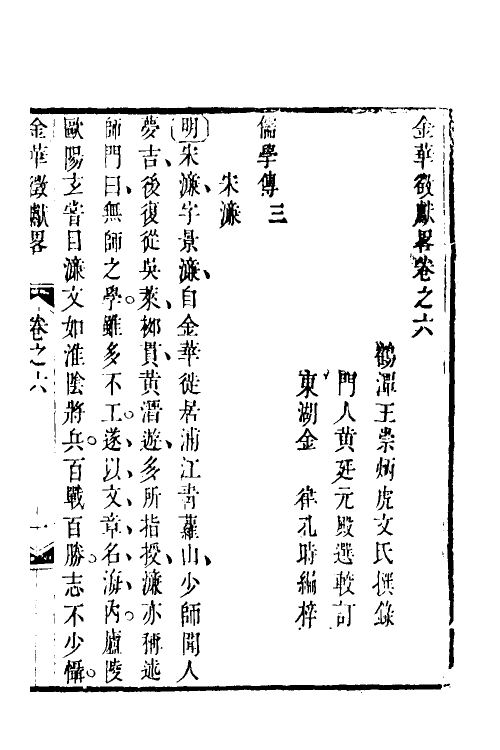 金華徵獻畧卷之六
鶴潭王崇炳虎文氏撰錄
門人黃廷元殿選較訂
東湖金 律孔時編梓
儒學傳三
宋濂
明宋濂字景濂自金華徙居浦江青蘿山少師聞人
夢吉後復從吳萊柳貫黃溍遊多所指授濂亦稱述
師門曰無師之學雖多不工遂以文章名海內廬陵
歐陽玄嘗目濂文如淮陰將兵百戰百勝志不少懾
金華徵獻畧 卷之六 一